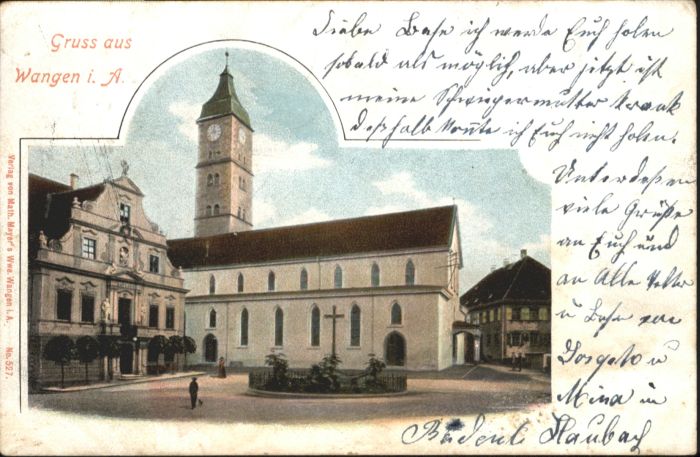 Gruss aus
Wangen i. A.
Liebe Base ich werde Euch holen
sobald als möglich, aber jetzt ist
meine Schwiegermutter krank
deßhalb konnte ich Euch nicht holen.
Unterdeßen
viele Grüße
an Euch und
an Alle Vetter
u Base von
u
Mina in
Haubach
Verlag von Math. Mayer's Wwe. Wangen i. A.
No. 527.